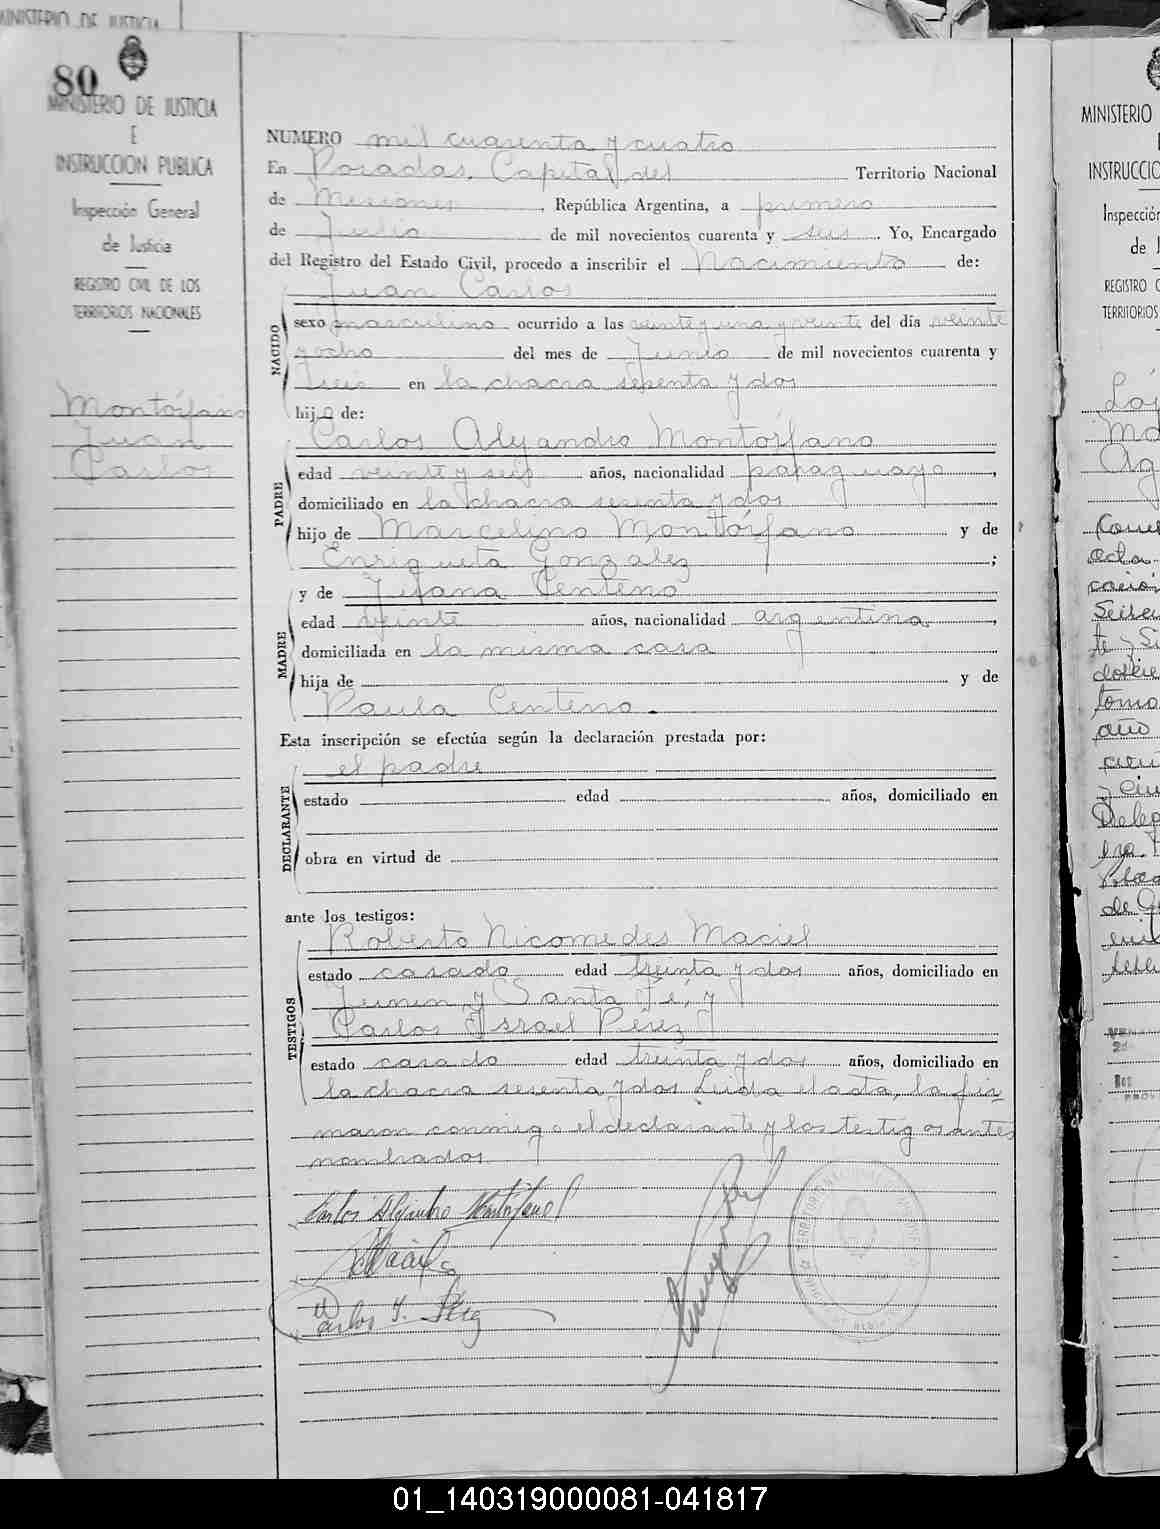 MINISTERIO DE JUSTICIA
80
MINISTERIO DE JUSTICIA
E
INSTRUCCION PUBLICA
Inspección General
de Justicia
REGISTRO CIVIL DE LOS
TERRITORIOS NACIONALES
Montórfano
Juan
Carlos
NUMERO mil cuarenta y cuatro
En Posadas, Capital del Territorio Nacional
de Misiones, República Argentina, a primero
de Julio de mil novecientos cuarenta y seis. Yo, Encargado
del Registro del Estado Civil, procedo a inscribir el Nacimiento de:
Juan Carlos
NACIDO
sexo masculino ocurrido a las veinte y una y veinte del día veinte
y ocho del mes de Junio de mil novecientos cuarenta y
seis en la chacra sesenta y dos
hijo de:
Carlos Alejandro Montórfano
PADRE
edad veinte y seis años, nacionalidad paraguaya,
domiciliado en la chacra sesenta y dos
hijo de Marcelino Montórfano y de
Enriqueta Gonzalez;
y de Centeno
MADRE
edad veinte años, nacionalidad argentina,
domiciliada en la misma casa
hija de y de
Paula Centeno.
Esta inscripción se efectúa según la declaración prestada por:
el padre
DECLARANTE
estado edad años, domiciliado en
obra en virtud de
ante los testigos:
Roberto Nicomedes Maciel
TESTIGOS
estado casado edad treinta y dos años, domiciliado en
Junin y Santa Fé, y
Carlos Israel Pérez
estado casado edad treinta y dos años, domiciliado en
la chacra sesenta y dos. Leida el acta, la fir-
maron conmigo el declarante y los testigos antes
nombrados.
Carlos Alejandro Montórfano
Carlos I. Pérez
MINISTERIO
INSTRUCCIO
Inspección
de J
REGISTRO C
TERRITORIOS
01_140319000081-041817